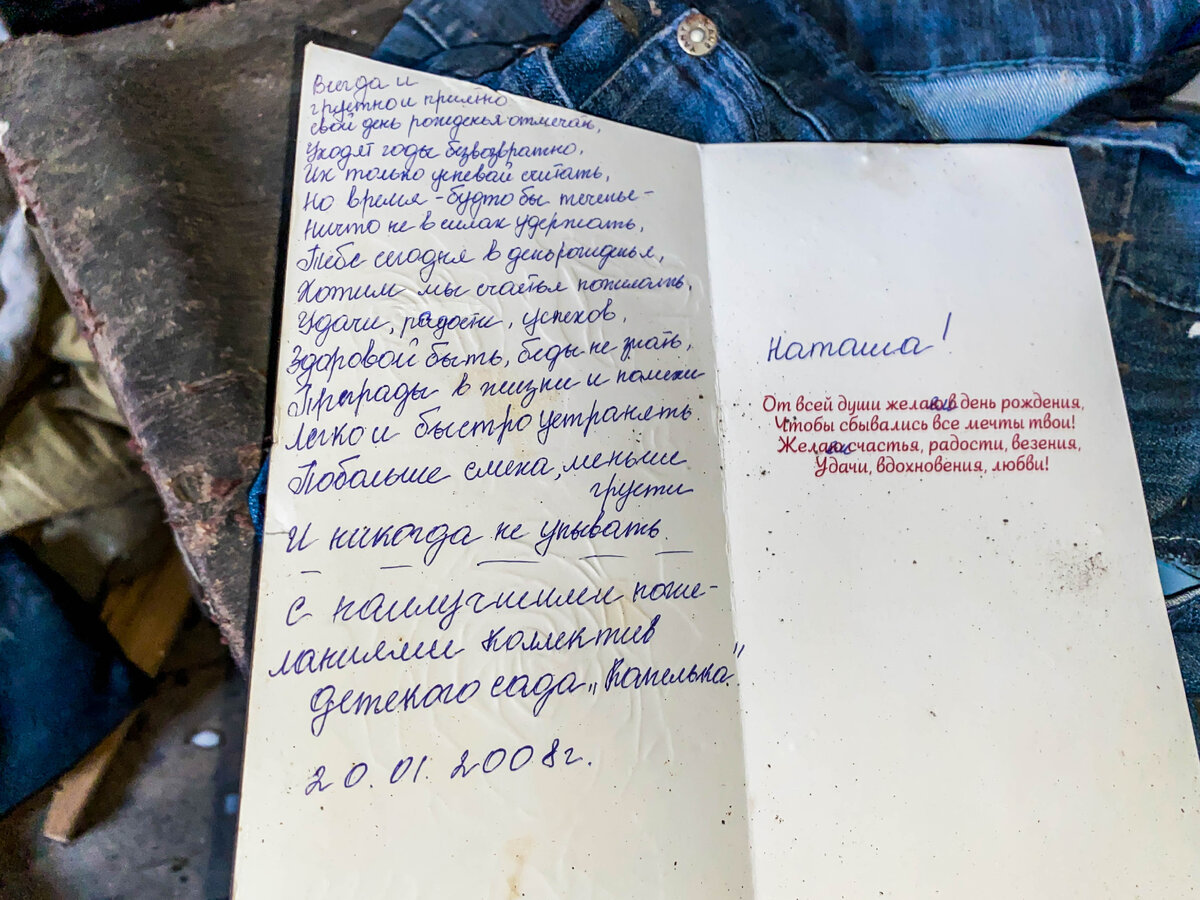 Всегда и
грустно и приятно
свой день рожденья отмечать,
Уходят годы безвозвратно,
Их только успевай считать,
Но время - будто бы теченье -
Ничто не в силах удержать,
Тебе сегодня в день рожденья,
Хотим мы счастья пожелать,
Удачи, радости, успехов,
Здоровой быть, беды не знать,
Преграды в жизни и помехи
Легко и быстро устранять
Побольше смеха, меньше
грусти
И никогда не унывать.
С наилучшими поже-
ланиями коллектив
детского сада „Капелька"
20.01.2008г.
Наташа!
От всей души желаем в день рождения,
Чтобы сбывались все мечты твои!
Желаем счастья, радости, везения,
Удачи, вдохновения, любви!